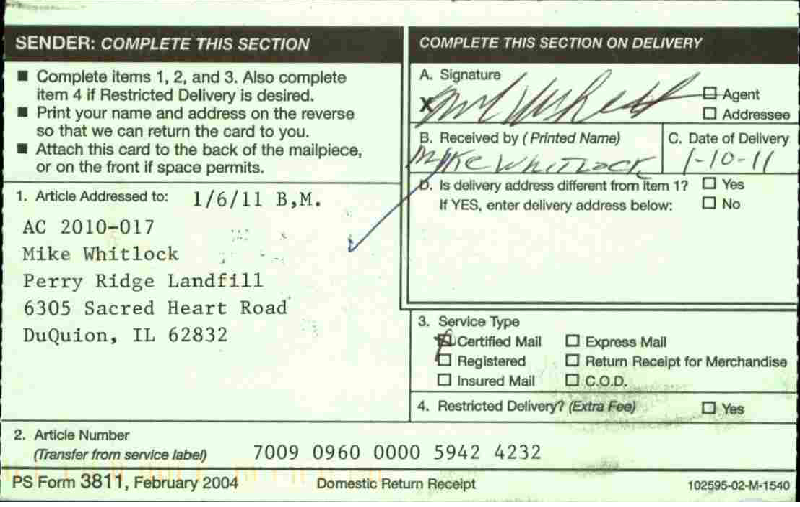 SENDER: COMPLETE THIS SECTION
■ Complete items 1, 2, and 3. Also complete
item 4 if Restricted Delivery is desired.
■ Print your name and address on the reverse
so that we can return the card to you.
■ Attach this card to the back of the mailpiece,
or on the front if space permits.
1. Article Addressed to: 1/6/11 B,M.
AC 2010-017
Mike Whitlock
Perry Ridge Landfill
6305 Sacred Heart Road
DuQuion, IL 62832
COMPLETE THIS SECTION ON DELIVERY
A. Signature
X
☐ Agent
☐ Addressee
B. Received by (Printed Name)
Mike Whitlock
C. Date of Delivery
1-10-11
D. Is delivery address different from item 1? ☐ Yes
If YES, enter delivery address below: ☐ No
3. Service Type
☑ Certified Mail ☐ Express Mail
☐ Registered ☐ Return Receipt for Merchandise
☐ Insured Mail ☐ C.O.D.
4. Restricted Delivery? (Extra Fee) ☐ Yes
2. Article Number
(Transfer from service label) 7009 0960 0000 5942 4232
PS Form 3811, February 2004 Domestic Return Receipt 102595-02-M-1540